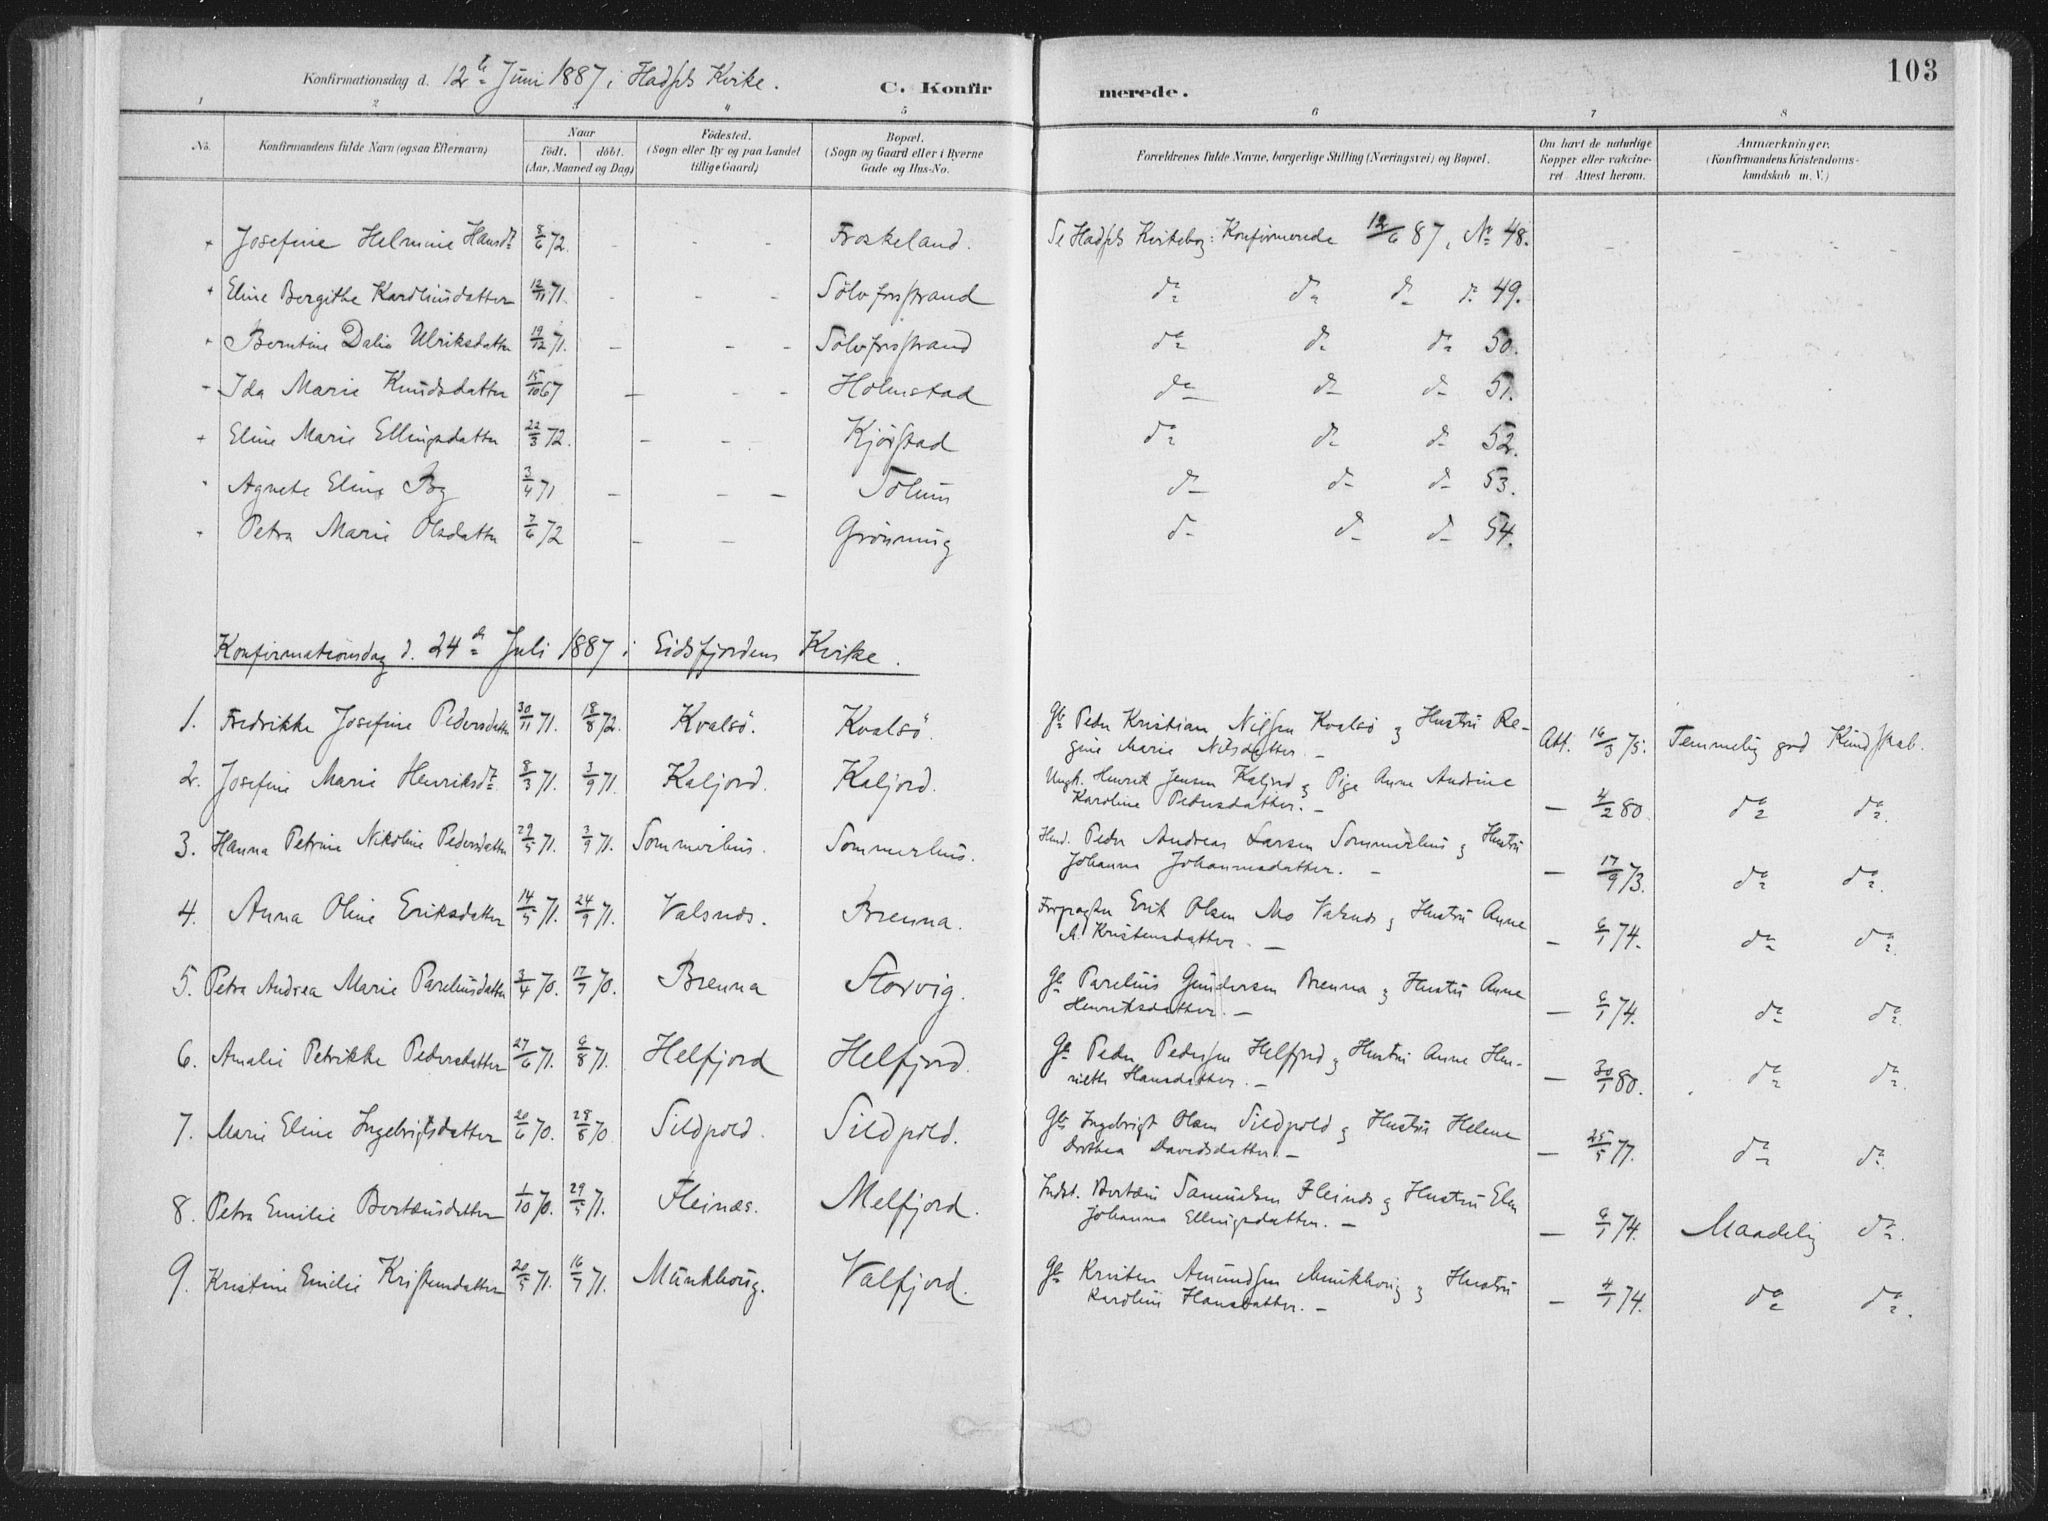 103
Konfirmationsdag d. 12te Juni 1887 i Hadsels Kirke.
C. Konfirmerede.
1 2 3 4 5 6 7 8
No. Konfirmandens fulde Navn (ogsaa Efternavn) Naar født. døbt. (Aar, Maaned og Dag) Fødested. (Sogn eller By og paa Landet tillige Gaard) Bopæl. (Sogn og Gaard eller i Byerne Gade og Hus-No. Forældrenes fulde Navne, borgerlige Stilling (Næringsvei) og Bopæl. Om havt de naturlige Kopper eller vakcineret Attest herom. Anmærkninger. (Konfirmandens Kristendomskundskab m. V.)
+ Josefine Helmine Hansdtr 8/6 72. - - - Froskeland. Se Hadsels Kirkebog: Konfirmerede 12/6 87, No 48.
+ Eline Bergithe Kardliusdatter 12/11 71. - - - Sölvforsstrand do do do do 49.
+ Berntine Dalia Ulriksdatter 19/12 71. - - - Sölvforsstrand do do do 50.
- Ida Marie Knudsdatter 15/10 67 - - - Holmstad do do do 51.
+ Eline Marie Ellingsdatter 22/3 72. - - - Kjörstad do do do 52.
- Agnete Eline By 3/4 71 - - - do do do 53.
- Petra Marie Olsdatter 7/6 72 - - Grönning do do do 54.
Konfirmationsdag d. 24de Juli 1887 i Eidsfjordens Kirke.
1. Fredrikke Josefine Pedersdatter 30/11 71. 18/8 72. Kvalsö. Kvalsö. Gbr Peder Kristian Nilsen Kvalsö og Hustru Regine Marie Nilsdatter. - Att. 16/3 75. Temmelig god Kundskab.
2. Josefine Marie Henriksdtr 8/3 71. 3/9 71. Kaljord. Kaljord. Ungk. Henrik Jensen Kaljord og Pige Anne Andrine Karoline Pedersdatter. - - 4/2 80. do do.
3. Hanna Petrine Nikoline Pedersdatter 29/5 71. 3/9 71. Sommerhus. Sommerhus. Peder Andreas Larsen Sommerhus og Hustru Johanna Johannesdatter. - - 17/9 73. do do.
4. Anna Oline Eriksdatter 14/5 71. 24/9 71. Valsnæs. Brenna. Forpagter Erik Olsen Mo Valsnæs og Hustru Anne M. Kristensdatter. - - 6/1 74. do do.
5. Petra Andrea Marie Pareliusdatter 3/4 70. 17/7 70. Brenna Storvig. Gbr Parelius Gundersen Brenna og Hustru Anne Henriksdatter. - - 6/1 74. do do.
6. Amalie Petrikke Pedersdatter 27/6 71. 6/8 71. Helfjord Helfjord. Gbr Peder Pedersen Helfjord og Hustru Anne Henriette Hansdatter. - - 30/1 80. do do.
7. Marie Eline Ingebrigtsdatter 20/6 70. 28/8 70 Sildpold. Sildpold. Gbr Ingebrigt Olsen Sildpold og Hustru Helene Dorthea Davidsdatter. - - 25/5 77. do do.
8. Petra Emilie Bertæusdatter 1/10 70. 29/5 71. Fleinæs. Melfjord. Indst. Bertæus Samuelsen Fleinæs og Hustru Elen Johanna Ellingsdatter. - - 6/1 74. Maadelig do.
9. Kristine Emilie Kristensdatter 20/5 71. 16/7 71. Munkhoug. Valfjord. Gbr Kristen Amundsen Munkhoug og Hustru Karoline Hansdatter. - - 4/1 74. do do.